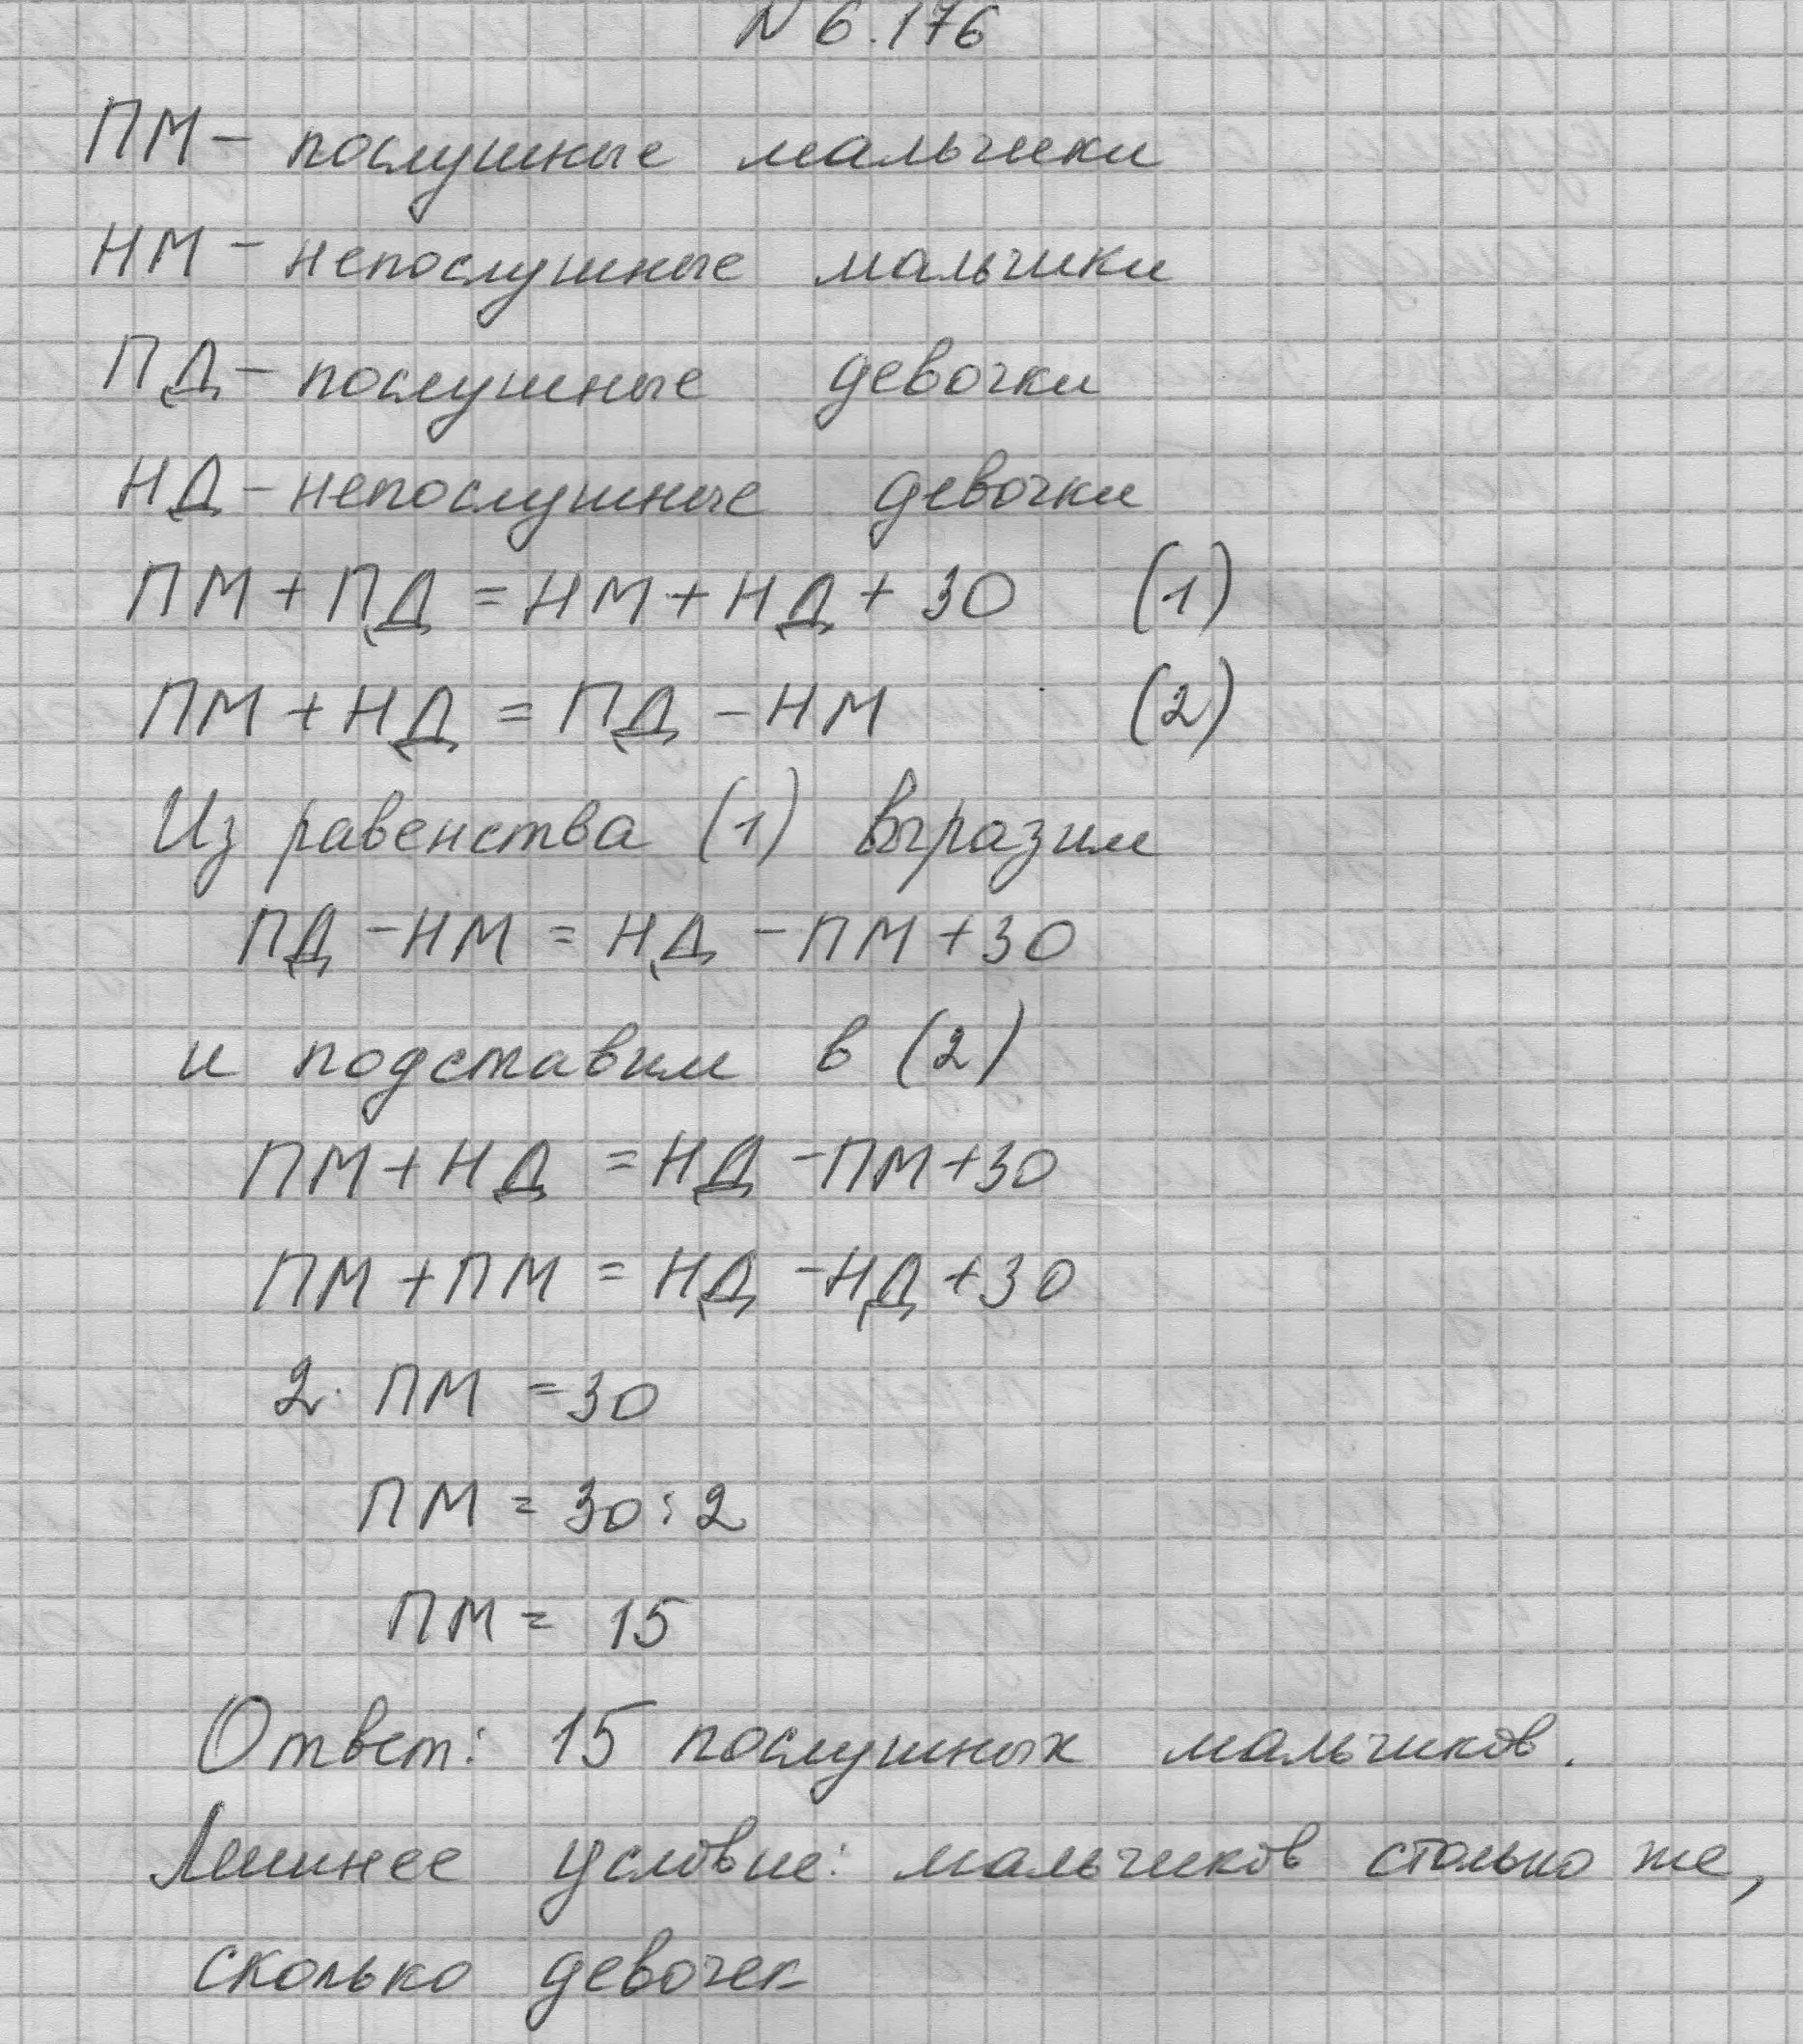 N 6.176
ПМ – послушные мальчики
НМ – непослушные мальчики
ПД – послушные девочки
НД – непослушные девочки
ПМ + ПД = НМ + НД + 30 (1)
ПМ + НД = ПД – НМ (2)
Из равенства (1) выразим
ПД – НМ = НД – ПМ + 30
и подставим в (2)
ПМ + НД = НД – ПМ + 30
ПМ + ПМ = НД – НД + 30
2 · ПМ = 30
ПМ = 30 : 2
ПМ = 15
Ответ: 15 послушных мальчиков.
Лишнее условие: мальчиков столько же,
сколько девочек